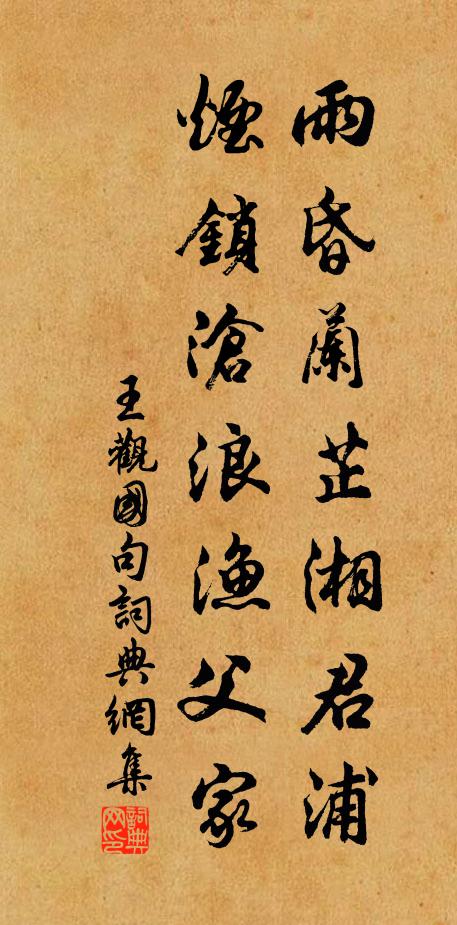 雨昏蘭芷湘君浦
煙鎖滄浪漁父家
王觀國句詞典網集
詞典网印